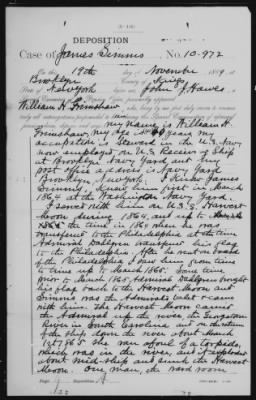 DEPOSITION
Case of James Simms, No. 10-972
On this 19th day of November, 1889, at
Brooklyn, County of Kings
State of New York, before me, John J. Hawes
William H. Grimshaw
my name is William H.
Grimshaw, my age is 40 years my
occupation is Steward in the U.S. Navy
now employed on U.S. Receiving Ship
at Brooklyn Navy Yard and my
post office address is Navy Yard
Brooklyn, New York. I knew James
Simms, knew him first in March
1864 at the Washington Navy Yard.
I served with him on U.S.S. Harvest
Moon during 1864, and up to
the time in 1864 when he was
transferred to the Philadelphia at the time
Admiral Dahlgren transferred his flag
to the Philadelphia. After he went on board
of the Philadelphia I saw him from time
to time up to March 1865. Some time
prior to March 1865 Admiral Dahlgren brought
his flag back to the Harvest Moon and
Simms was the Admiral's valet & came
with him. The Harvest Moon carried
the Admiral up the river, the Georgetown
River in South Carolina and on the return
of the ship down the river about March
1st 1865 she ran afoul of a torpedo,
which was in the river, and it exploded
about mid-ship and sunk the Harvest
Moon. One man, the ward room
Page 1 Deposition A